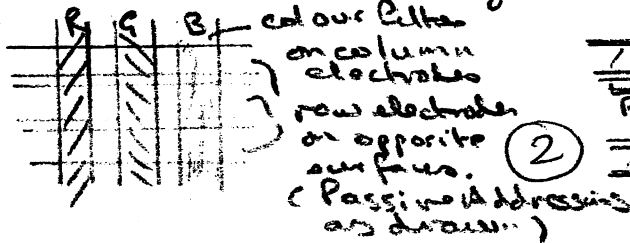 R G B colour filter
on column
electrodes
row electrodes
on opposite
surfaces. 2
(Passive Addressing
as drawn..)